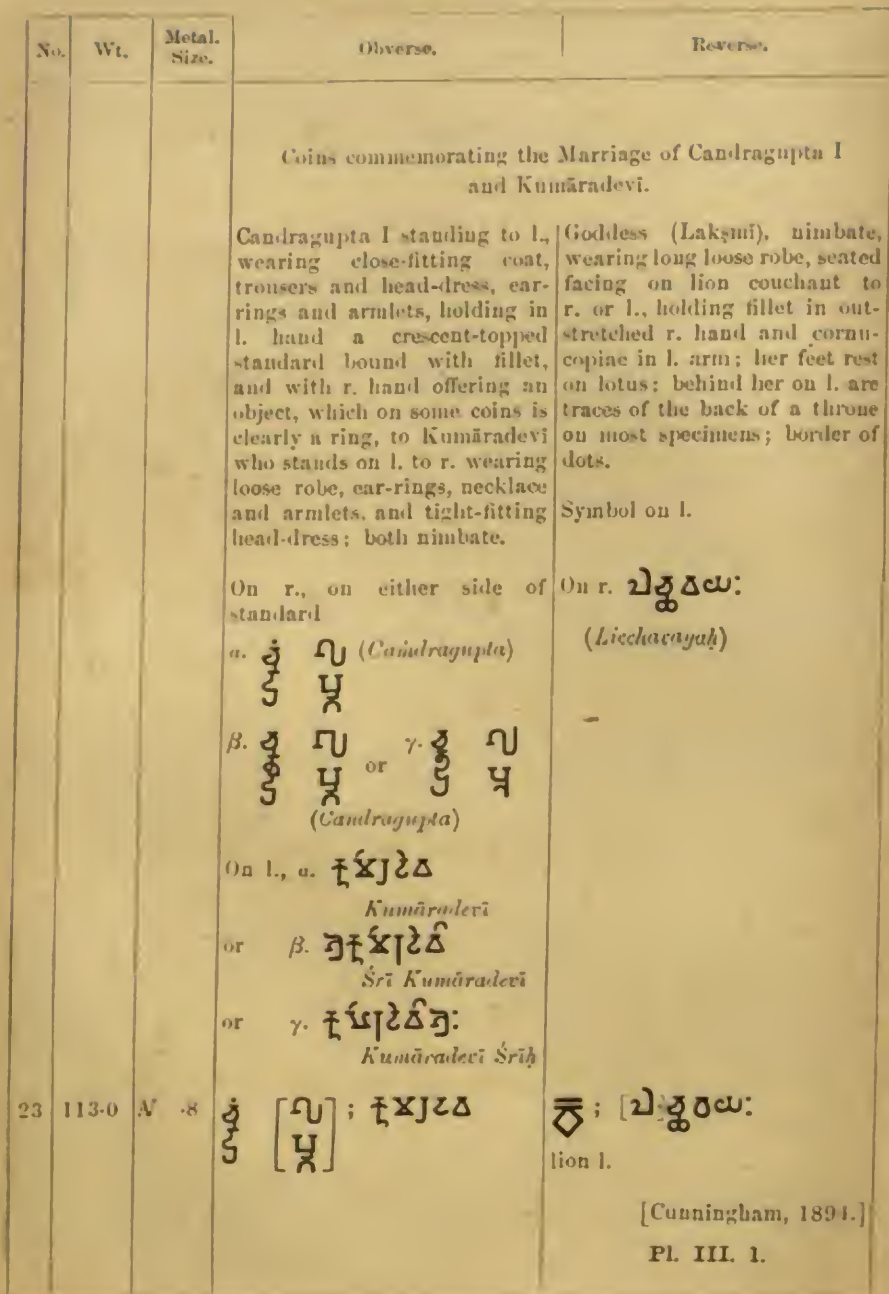 No. Wt. Metal. Size. Obverse. Reverse.
Coins commemorating the Marriage of Candragupta I
and Kumāradevī.
Candragupta I standing to l.,
wearing close-fitting coat,
trousers and head-dress, ear-
rings and armlets, holding in
l. hand a crescent-topped
standard bound with fillet,
and with r. hand offering an
object, which on some coins is
clearly a ring, to Kumāradevī
who stands on l. to r. wearing
loose robe, ear-rings, necklace
and armlets, and tight-fitting
head-dress; both nimbate.
On r., on either side of
standard
α. (Caṁdragupta)
β. or γ.
(Candragupta)
On l., α.
Kumāradevī
or β.
Śrī Kumāradevī
or γ.
Kumāradevī Śrīḥ
Goddess (Lakṣmī), nimbate,
wearing long loose robe, seated
facing on lion couchant to
r. or l., holding fillet in out-
stretched r. hand and cornu-
copiae in l. arm; her feet rest
on lotus; behind her on l. are
traces of the back of a throne
on most specimens; border of
dots.
Symbol on l.
On r.
(Licchavayaḥ)
23 113·0 ·8
lion l.
[Cunningham, 1894.]
Pl. III. 1.